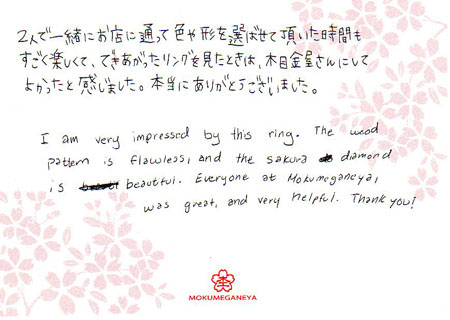 2人で一緒にお店に通って色や形を選ばせて頂いた時間も
すごく楽しくて、できあがったリングを見たときは、木目金屋さんにして
よかったと感じました。本当にありがとうございました。
I am very impressed by this ring. The wood
pattern is flawless, and the sakura diamond
is beautiful. Everyone at Mokumeganeya,
was great, and very helpful. Thank you!
MOKUMEGANEYA